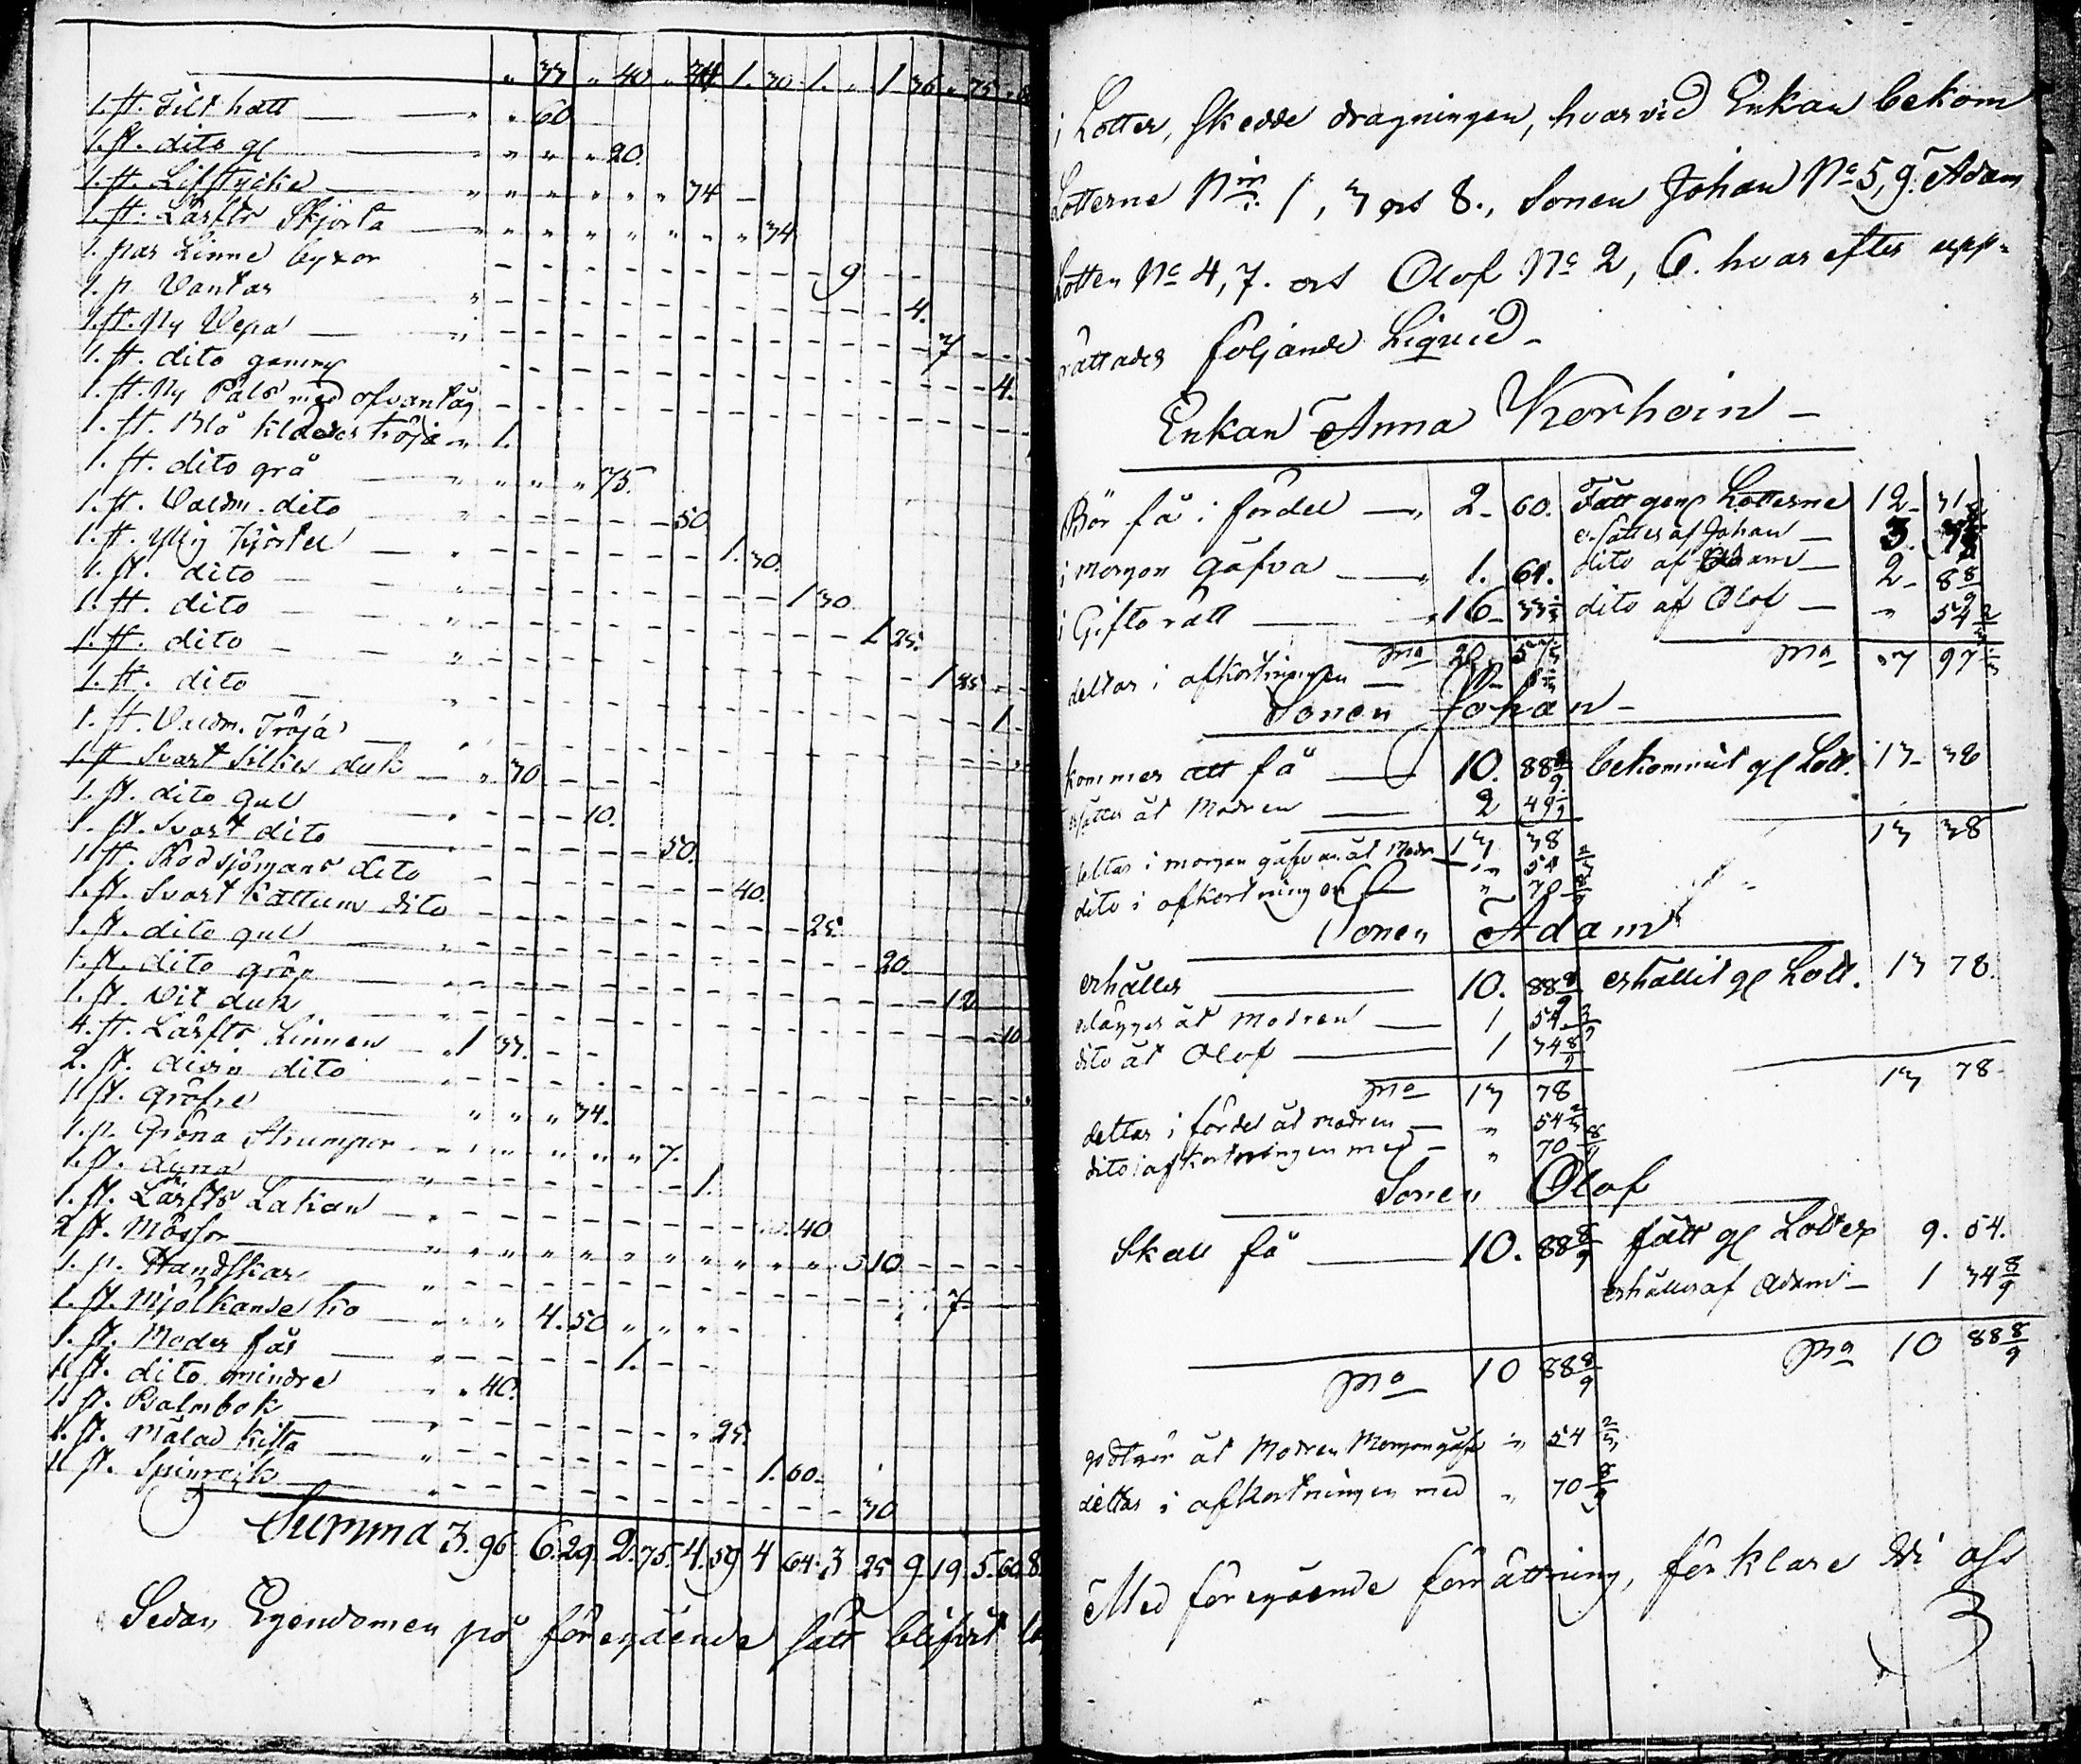 " 33 " 40 " 34 1. 30 1. " 1 36 " 75
1. st. Filt hatt — " " 60
1. st. dito gl — " " " " 20.
1. st. Lifstycke — " " " " " " 34 –
1. st. Lärfts Skjorta — " " " " " " " " 34
1. par Linne byxor – – – – 9
1. p. Vantar " – – – – 4.
1. st. Ny Vepa — " – – – – 7
1. st. dito gamml – – – – 4.
1. st. Ny Päls med ofvantåg – – – –
1. st. Blå klädes tröja " 1.
1. st. dito grå " " " " 75.
1. st. Valdm. dito — " – – – – 50
1. st. Yllg Kjortel — " – – – – 1. 30.
1. st. dito — " – – – – 1 30
1. st. dito — " – – – – 1 25.
1. st. dito — " – – – – 1 85
1. st. dito — " – – – – 1
1. st. Valdm. Tröja — " – – – –
1. st Svart Silkes duk — " 30 – – –
1. st. dito gul " – – – 10.
1. st. Svart dito — – – – – 50.
1. st. Röd sjömans dito – – – – 40.
1. st. Svart Kattuns dito – – – – 25.
1. st. dito gul — " – – – – 20.
1. st. dito grön – – – – 12
1. st. Vit duk " – – – – 10
4. st. Lärfts Linnen — " 1 33. – –
2. st. dito – – – –
1 st. gröfre — " " " 34.
1. p. Gröna Strumpor — " " " " " " 7.
1. st. dyna " – – – – 1.
1. st. Lärfts Lakan — " – – – – 40
2 st. Mössor — " " " " " " " 10
1. p. Handskar — " – – – – 7
1. st. Mjölkande ko — " " " 4. 50 " " " –
1. st. Moder får — " – – – – 1. – –
1 st. dito mindre " " 40.
1 st. Psalmbok — " – – – – 25.
1. st. Målad kista — " – – – – 1. 60.
1 st. Spinrock — " – – – – 30
Summa 3. 96 6. 29. 2. 75. 4. 59 4 64. 3 25 9 19 5. 60. 8
Sedan Egendomen på föregående sätt blifvit
i Lotter, skedde dragningen, hvarvid Enkan bekom
Lotterne 1, 3 och 8., Sonen Johan No 5, 9. Adam
Lotten No 4, 7. och Olof No 2, 6. hvarefter upp=
rättades följande Liquid –
Enkan Anna Korhoin –
Bör få i fördel — " 2 – 60. Fått genl Lotterne 12 –
i Morgon gåfva — " 1. 64. ersättes af Johan — 3.
i Gifto rätt — " 16 – 33⅓ dito af Adam — 2 – 8 8/9
dito af Olof — " 54 2/3
Ma 20 57 1/3 Ma 97
deltar i afkortningen —
Sonen Johan –
kommer att få — 10. 88 8/9 bekommit gl Lott. 13 – 38
ersätter åt Modren — 2 49 1/9
13 38 13 38
deltar i morgon gåfvan åt Modr — " 54 2/3
dito i afkortningen — " 70 8/9
Sonen Adam
erhåller — 10. 88 8/9 erhållit gl Lott. 13 78.
erlägger åt Modren — 1 54 2/9
dito åt Olof — 1 34 8/9
Ma 13 78 13 78
deltar i fördel åt modren — " 54 2/3
dito i afkortningen med — " 70 8/9
Sonen Olof
Skall få — 10. 88 8/9 fått gl Lotter 9. 54.
erhåller af Adam — 1 34 8/9
Ma 10 88 8/9 Ma 10 88 8/9
godtgör åt Modren Morgongåfv " 54 2/3
deltar i afkortningen med " 70 8/9
Med föregående förrättning, förklare Wi oss